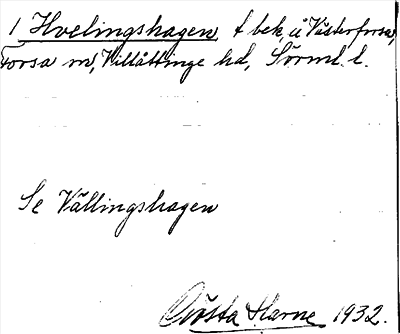 1 Hvelingshagen, t bek, å Västerforsa,
Forsa m, Villåttinge hd, Sörml. l.
Se Vällingshagen
Gösta Harne 1932.